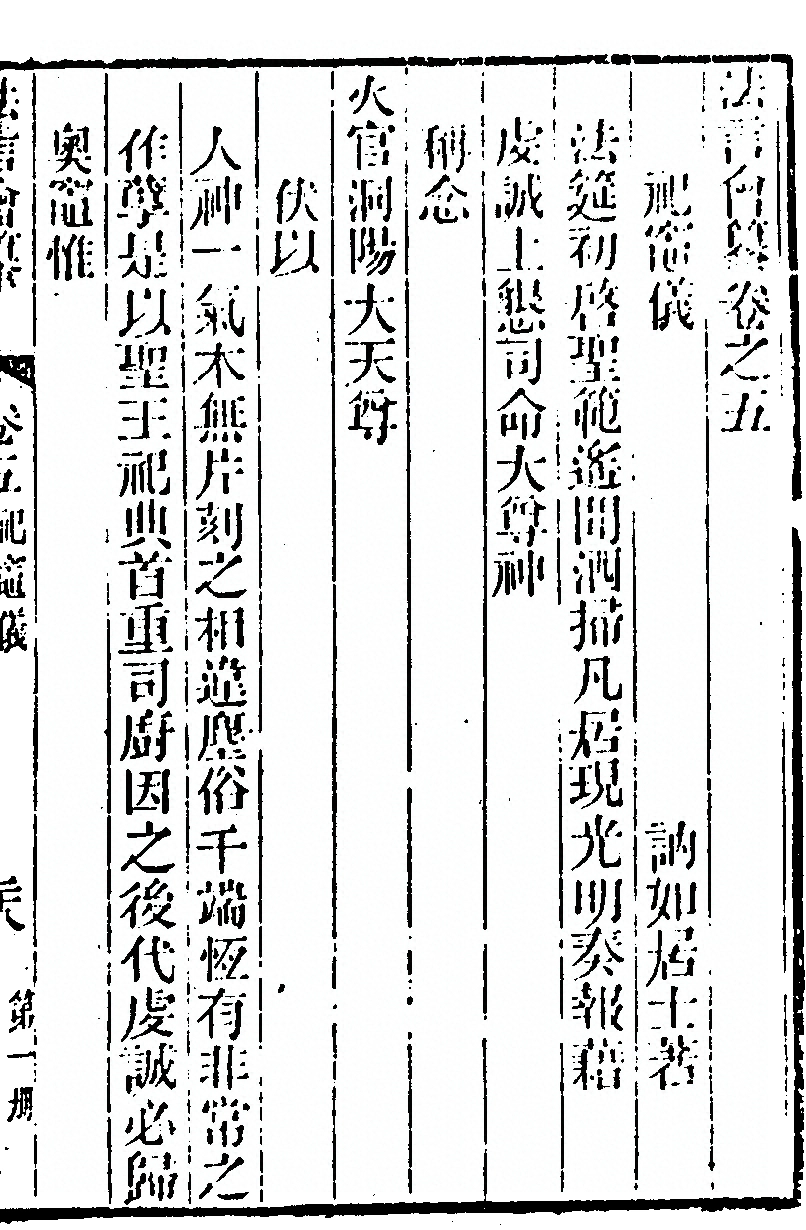 法言會纂卷之五
祀竈儀 訥如居士著
法筵初啓聖範遙聞洒掃凡居現光明奏報藉
虔誠上懇司命大尊神
稱念
火官洞陽大天尊
伏以
人神一氣本無片刻之相違塵俗千端恆有非常之
作孽是以聖王祀典首重司廚因之後代虔誠必歸
奧竈惟
法言會纂 卷五祀竈儀 第一册